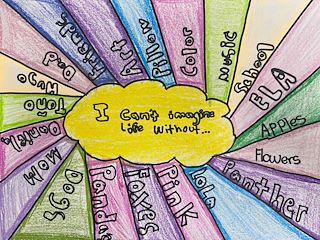 I Can't imagine
life without...
Friends
Art
Pillow
Color
music
School
ELA
Apples
Flowers
Panther
Lola
Pink
Foxes
Pandas
DOGS
MOM
Dad